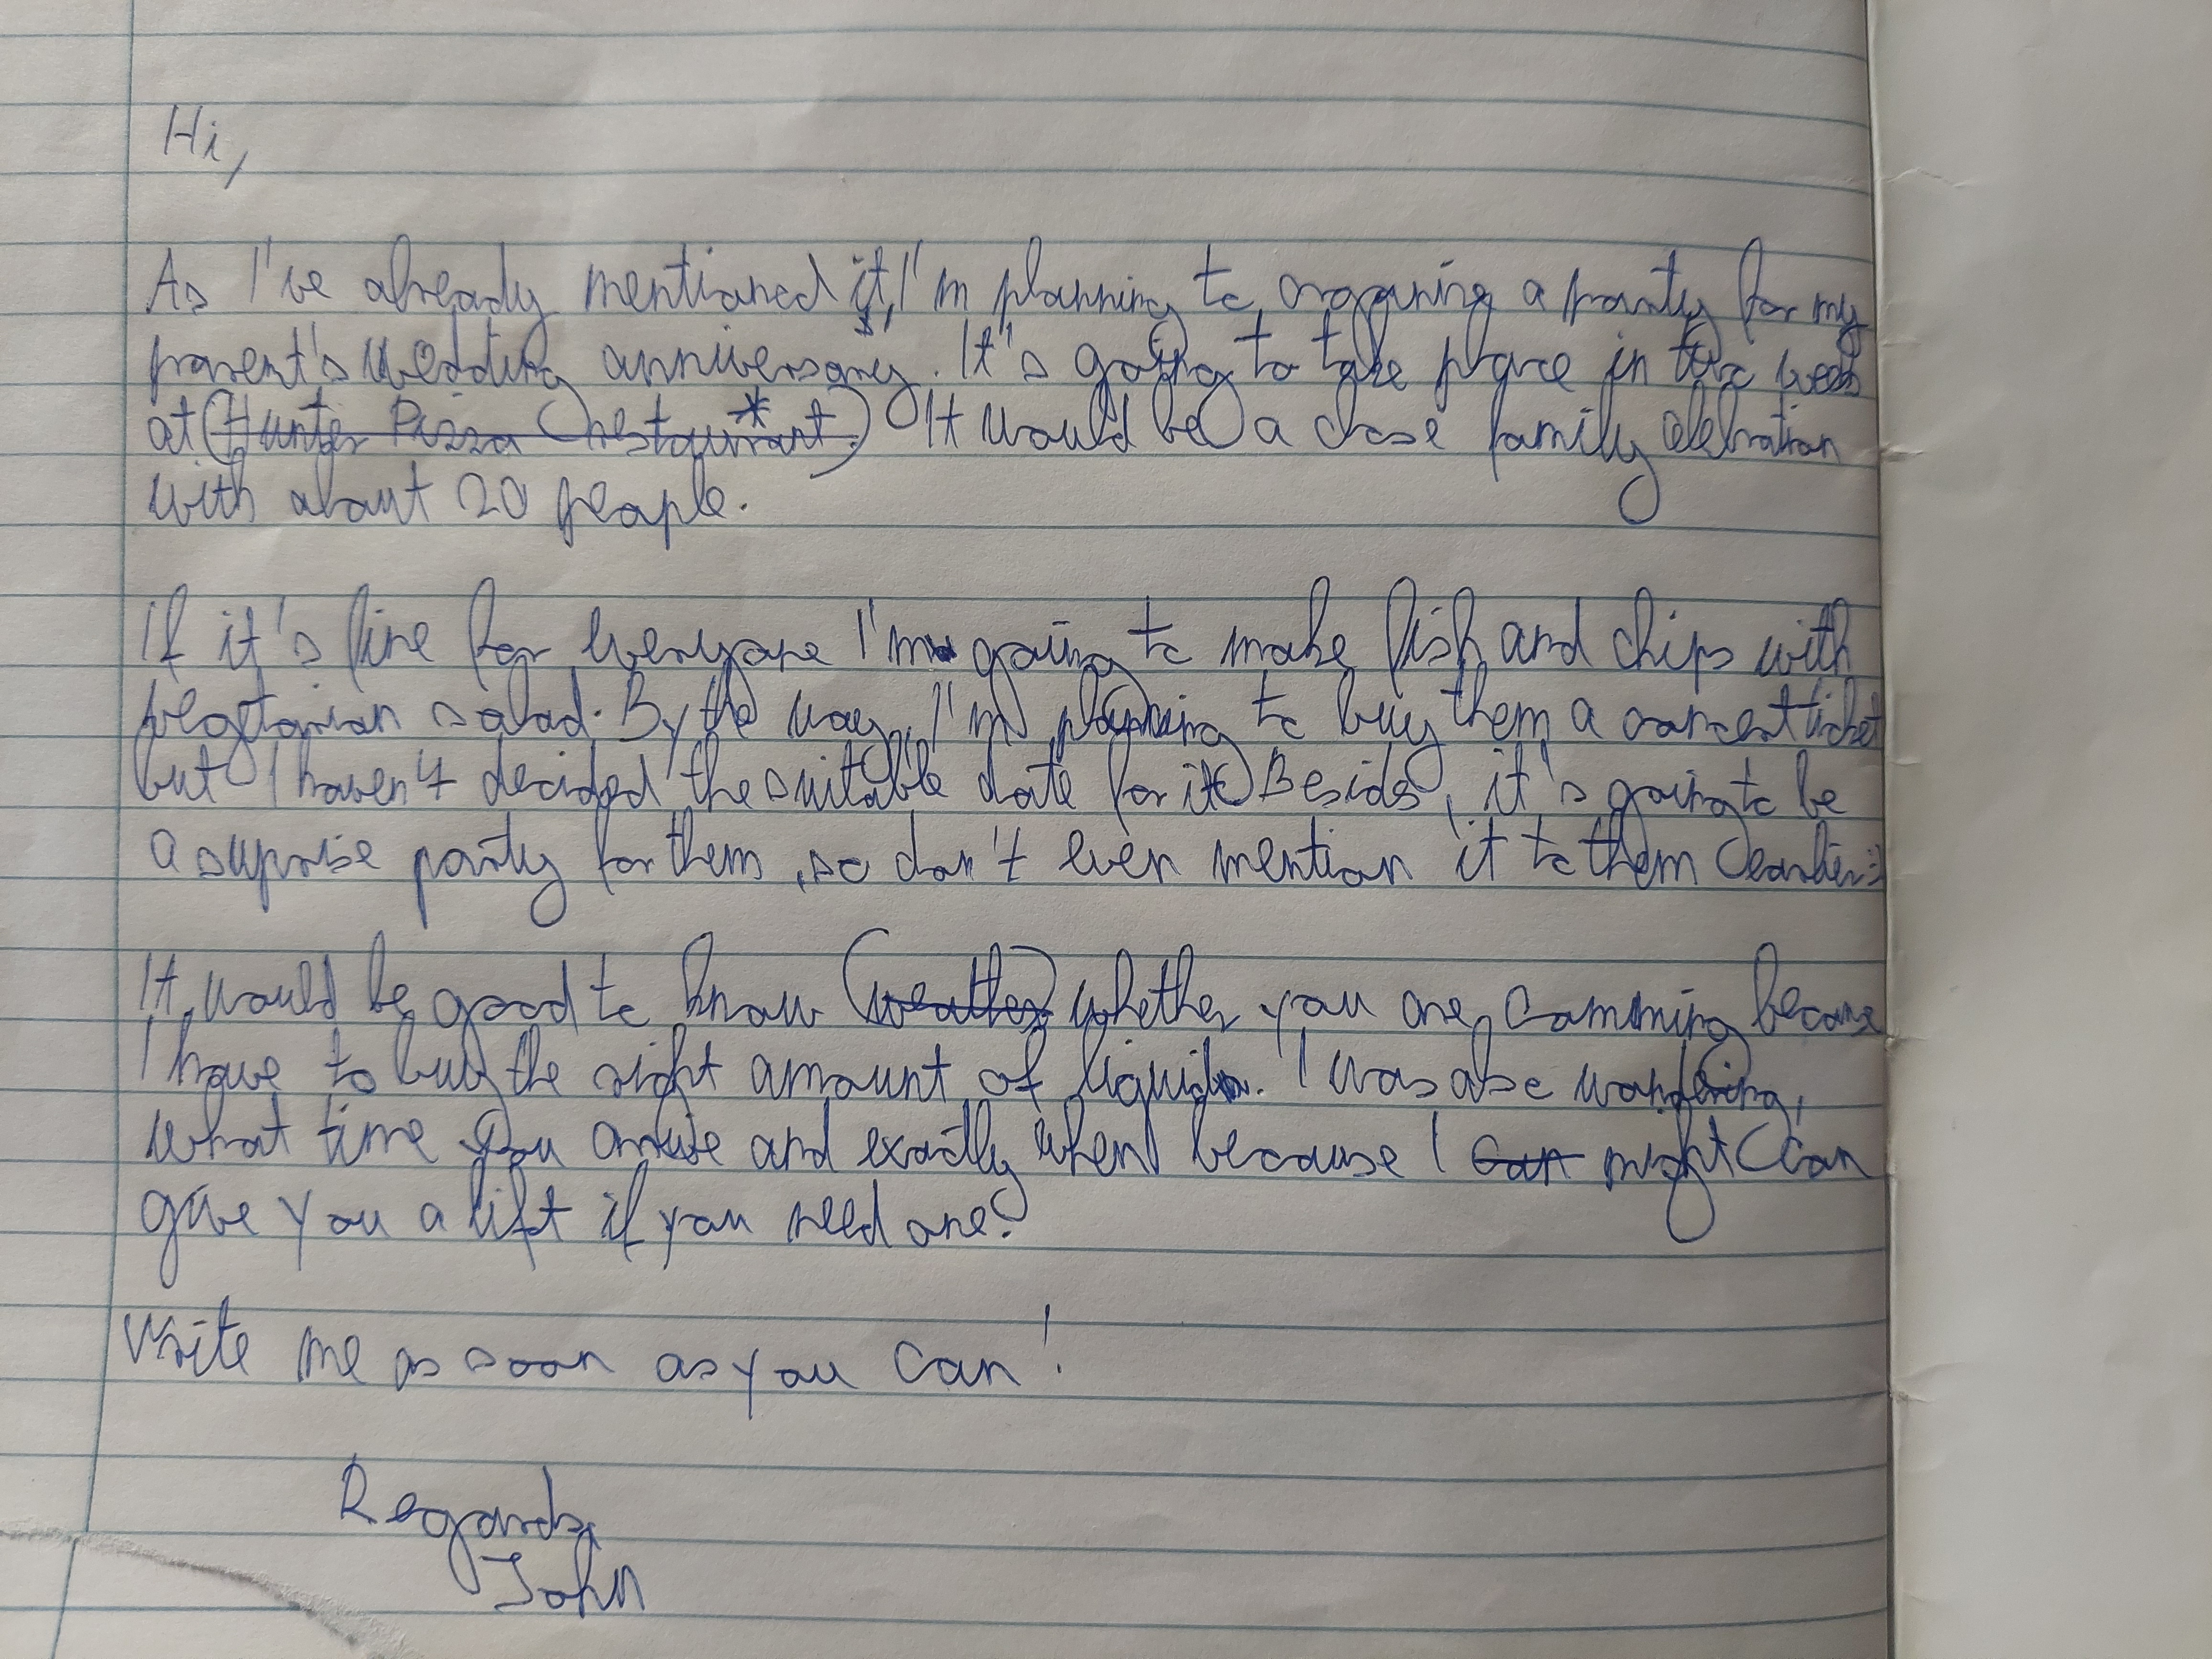 Hi,
As I've already mentioned it, I'm planning to organize a party for my
parent's wedding anniversary. It's going to take place in two weeks
at (Hunter Pizza restaurant.)* It would be a close family celebration
with about 20 people.
If it's fine for everyone I'm going to make fish and chips with
vegetarian salad. By the way, I'm planning to buy them a concert ticket
but I haven't decided the suitable date for it. Besides, it's going to be
a suprise party for them, so don't even mention it to them earlier :)
It would be good to know (weather) whether you are comming because
I have to buy the right amount of liquids. I was also wondering,
what time you arrive and exactly when because I can might can
give you a lift if you need one?
Write me as soon as you can!
Regards,
John